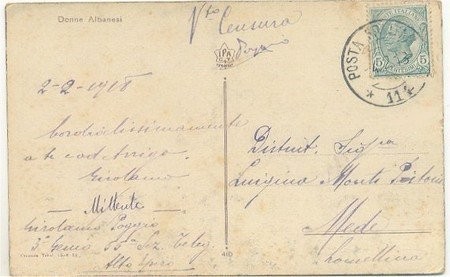 Donne Albanesi
Vto Censura
Poggio
POSTA
5 5
* 114 *
2-2-1918
Cordialissimamente
a te ed Arrigo
Girolamo
Mittente
Girolamo Poggio
3° Genio
Alto Epiro
460
Distint. Sigra
Luigina Monti
Mede
Lomellina